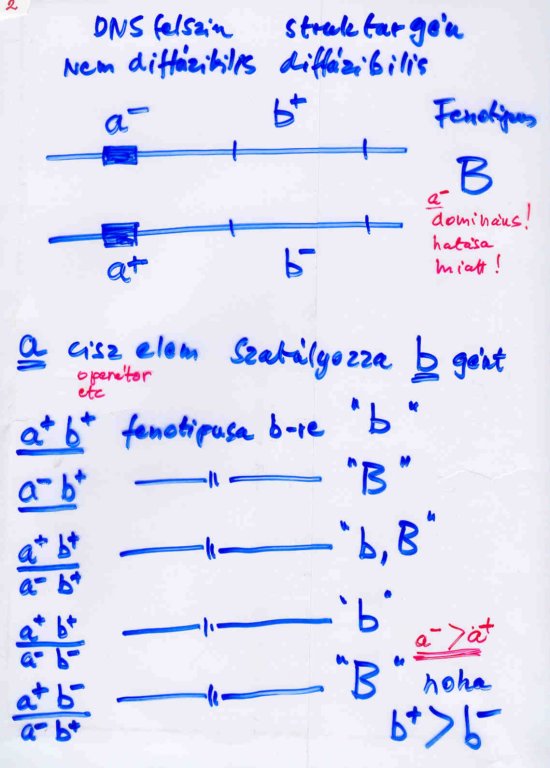 2
DNS felszín struktúrgén
nem diffúzibilis diffúzibilis
a⁻ b⁺ Fenotípus
B
a⁻
domináns!
hatása
miatt!
a⁺ b⁻
a cisz elem szabályozza b gént
operátor
etc
a⁺ b⁺ fenotípusa b-re "b"
a⁻ b⁺ —— || —— "B"
a⁺ b⁺
a⁻ b⁺ —— || —— "b, B"
a⁺ b⁺
a⁻ b⁻ —— || —— "b"
a⁺ b⁻
a⁻ b⁺ —— || —— "B"
a⁻ > a⁺
noha
b⁺ > b⁻